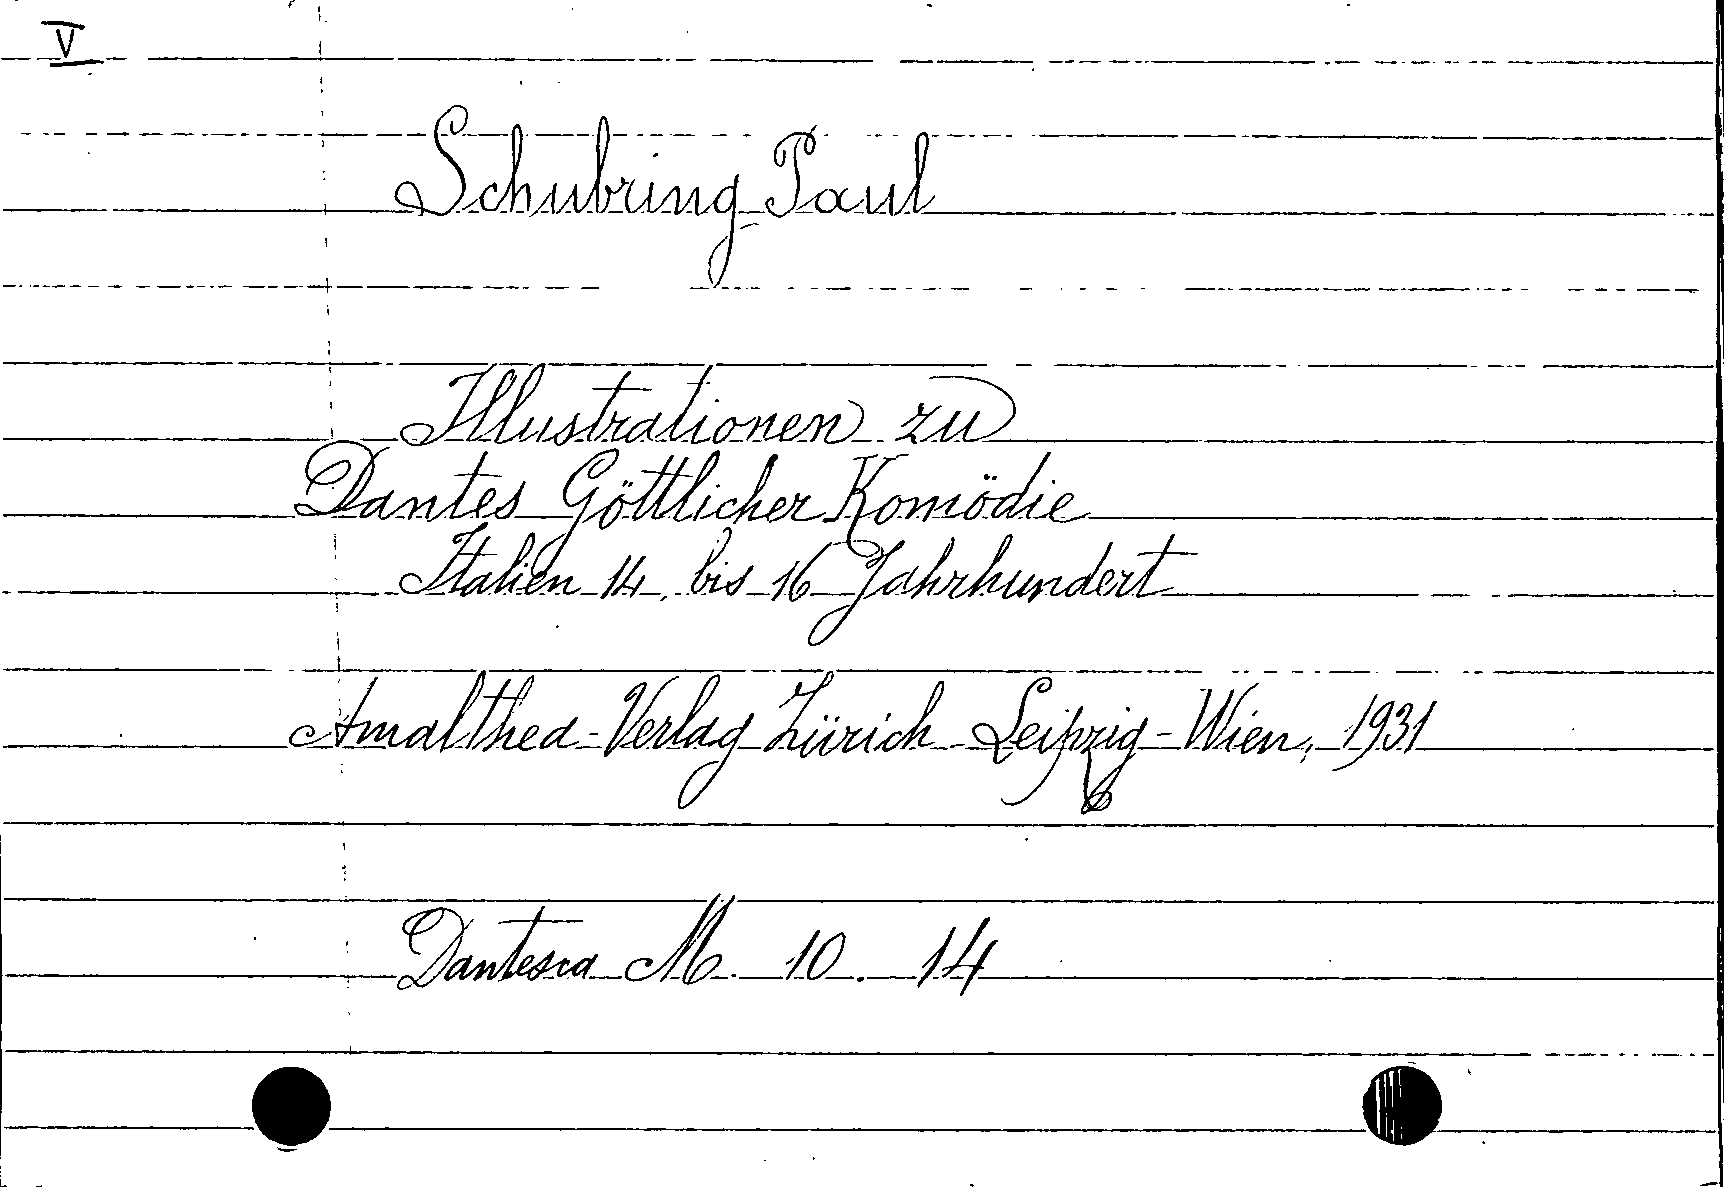 V
Schubring Paul
Illustrationen zu
Dantes Göttlicher Komödie
Italien 14. bis 16 Jahrhundert
Amalthea-Verlag Zürich Leipzig-Wien, 1931
Dantesca M. 10. 14